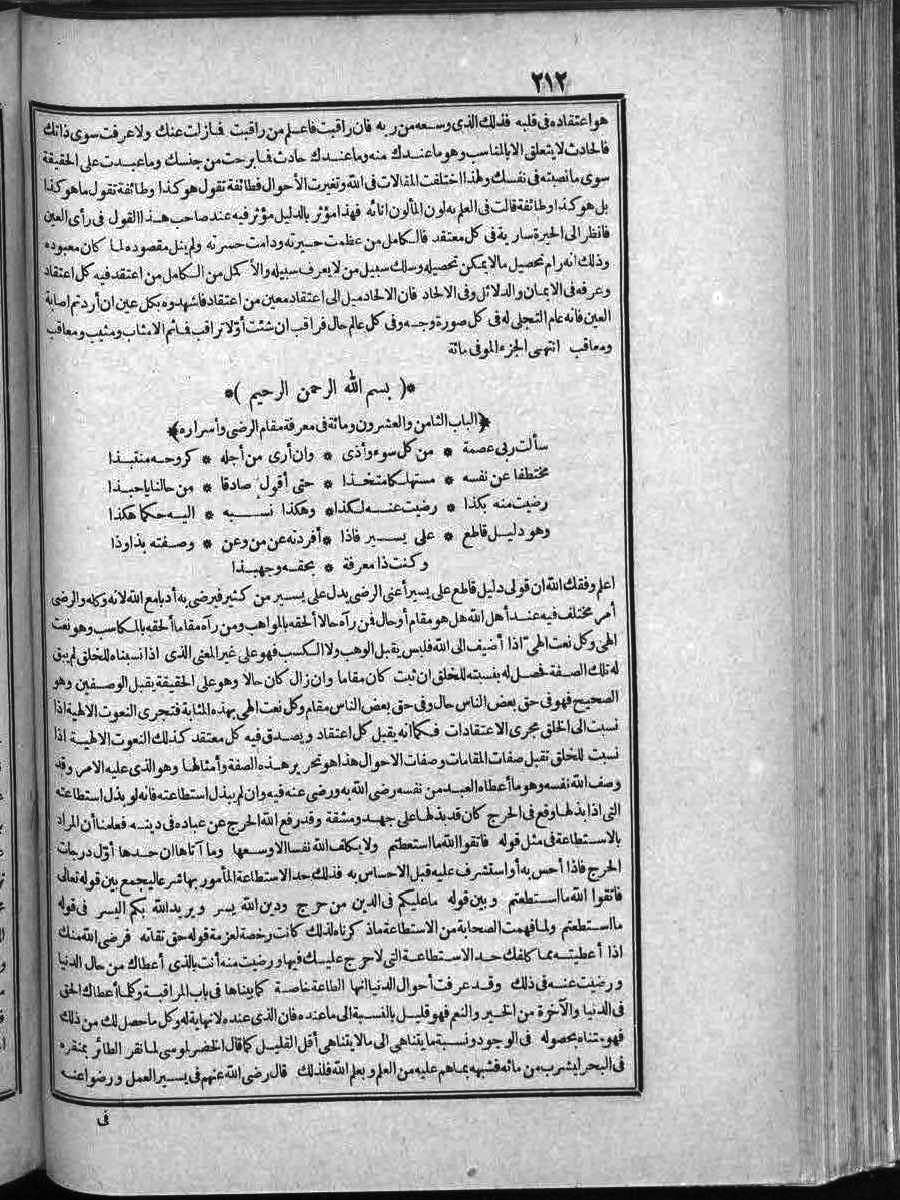 ٢١٢
هو اعتقاده فى قلبه فذلك الذى وسعه من ربه فان راقبت فاعلم من راقبت فما زلت عنك ولا عرفت سوى ذاتك
فالحادث لا يتعلق الا بالمناسب وهو ما عندك منه وما عندك حادث فما برحت من جنسك وما عبدت على الحقيقة
سوى ما نصبته فى نفسك ولهذا اختلفت المقالات فى الله وتغيرت الأحوال فطائفة تقول هو كذا وطائفة تقول ما هو كذا
بل هو كذا وطائفة قالت فى العلم به لون الماء لون انائه فهذا مؤثر بالدليل مؤثر فيه عند صاحب هذا القول فى رأى العين
فانظر الى الحيرة سارية فى كل معتقد فالكامل من عظمت حيرته ودامت حسرته ولم ينل مقصوده لما كان معبوده
وذلك انه رام تحصيل ما لا يمكن تحصيله وسلك سبيل من لا يعرف سبيله والأكمل من الكامل من اعتقد فيه كل اعتقاد
وعرفه فى الايمان والدلائل وفى الالحاد فان الالحاد ميل الى اعتقاد معين من اعتقاد فاشهدوه بكل عين ان أردتم اصابة
العين فانه عام التجلى له فى كل صورة وجه وفى كل عالم حال فراقب ان شئت أو لا تراقب فما ثم الا مثاب ومثيب ومعاقب
ومعاقب انتهى الجزء الموفى مائة
*( بسم الله الرحمن الرحيم )*
*(الباب الثامن والعشرون ومائة فى معرفة مقام الرضى وأسراره)*
سألت ربى عصمة * من كل سوء وأذى * وان أرى من أجله * كروحه منتبذا
مختطفا عن نفسه * مستهلكا متخذا * حتى أقول صادقا * من حالنا يا حبذا
رضيت منه بكذا * رضيت عنه لكذا * وهكذا نسبه * اليه حكما هكذا
وهو دليل قاطع * على يسير فاذا * أفردته عن من وعن * وصفته بذا وذا
وكنت ذا معرفة * بحقه وجهبذا
اعلم وفقك الله ان قولى دليل قاطع على يسير أعنى الرضى يدل على يسير من كثير فيرضى به أدبا مع الله لانه وكله والرضى
أمر مختلف فيه عند أهل الله هل هو مقام أو حال فمن رآه حالا ألحقه بالمواهب ومن رآه مقاما ألحقه بالمكاسب وهو نعت
الهى وكل نعت الهى اذا أضيف الى الله فليس يقبل الوهب ولا الكسب فهو على غير المعنى الذى اذا نسبناه للخلق لم يبق
له تلك الصفة فحصل له بنسبته للخلق ان ثبت كان مقاما وان زال كان حالا وهو على الحقيقة يقبل الوصفين وهو
الصحيح فهو فى حق بعض الناس حال وفى حق بعض الناس مقام وكل نعت الهى بهذه المثابة فتجرى النعوت الالهية اذا
نسبت الى الخلق مجرى الاعتقادات فكما انه يقبل كل اعتقاد ويصدق فيه كل معتقد كذلك النعوت الالهية اذا
نسبت للخلق تقبل صفات المقامات وصفات الاحوال هذا هو تحرير هذه الصفة وأمثالها وهو الذى عليه الامر وقد
وصف الله نفسه وهو ما أعطاه العبد من نفسه رضى الله به ورضى عنه فيه وان لم يبذل استطاعته فانه لو بذل استطاعته
التى اذا بذلها وقع فى الحرج كان قد بذلها على جهد ومشقة وقد رفع الله الحرج عن عباده فى دينه فعلمنا أن المراد
بالاستطاعة فى مثل قوله فاتقوا الله ما استطعتم ولا يكلف الله نفسا الا وسعها وما آتاها ان حدها أول درجات
الحرج فاذا أحس به أو استشرف عليه قبل الاحساس به فذلك حد الاستطاعة المأمور بها شرعا ليجمع بين قوله تعالى
فاتقوا الله ما استطعتم وبين قوله ما عليكم فى الدين من حرج ودين الله يسر ويريد الله بكم اليسر فى قوله
ما استطعتم ولما فهمت الصحابة من الاستطاعة ما ذكرناه لذلك كانت رخصة لعزمة قوله حق تقاته فرضى الله منك
اذا أعطيته مما كلفك حد الاستطاعة التى لا حرج عليك فيها ورضيت منه أنت بالذى أعطاك من حال الدنيا
ورضيت عنه فى ذلك وقد عرفت أحوال الدنيا انها الطاعة خاصة كما بيناها فى باب المراقبة وكلما أعطاك الحق
فى الدنيا والآخرة من الخير والنعم فهو قليل بالنسبة الى ما عنده فان الذى عنده لا نهاية له وكل ما حصل لك من ذلك
فهو متناه بحصوله فى الوجود ونسبة ما يتناهى الى ما لا يتناهى أقل القليل كما قال الخضر لموسى لما نقر الطائر بمنقره
فى البحر ليشرب من مائه فشبهه بما هم عليه من العلم وبعلم الله فلذلك قال رضى الله عنهم فى يسير العمل ورضوا عنه
فى